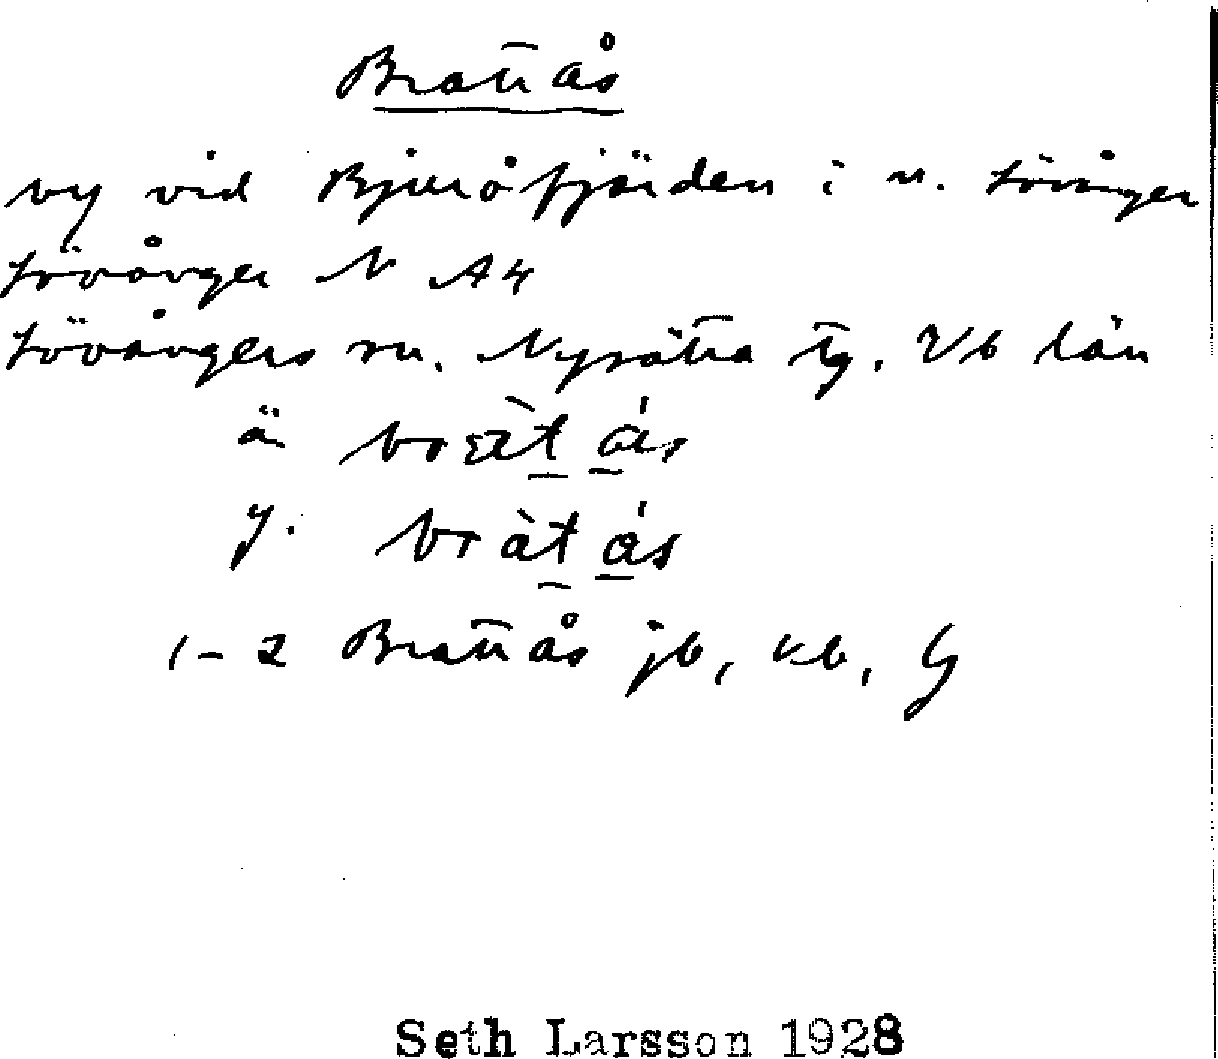 Brattås
by vid Bjuröfjärden i n. Lövånger
Lövånger N A4
Lövångers sn. Nysätra tg. Vb län
ä bræ̀t ás
y. bràt ás
1-2 Brattås jb, kb, G
Seth Larsson 1928